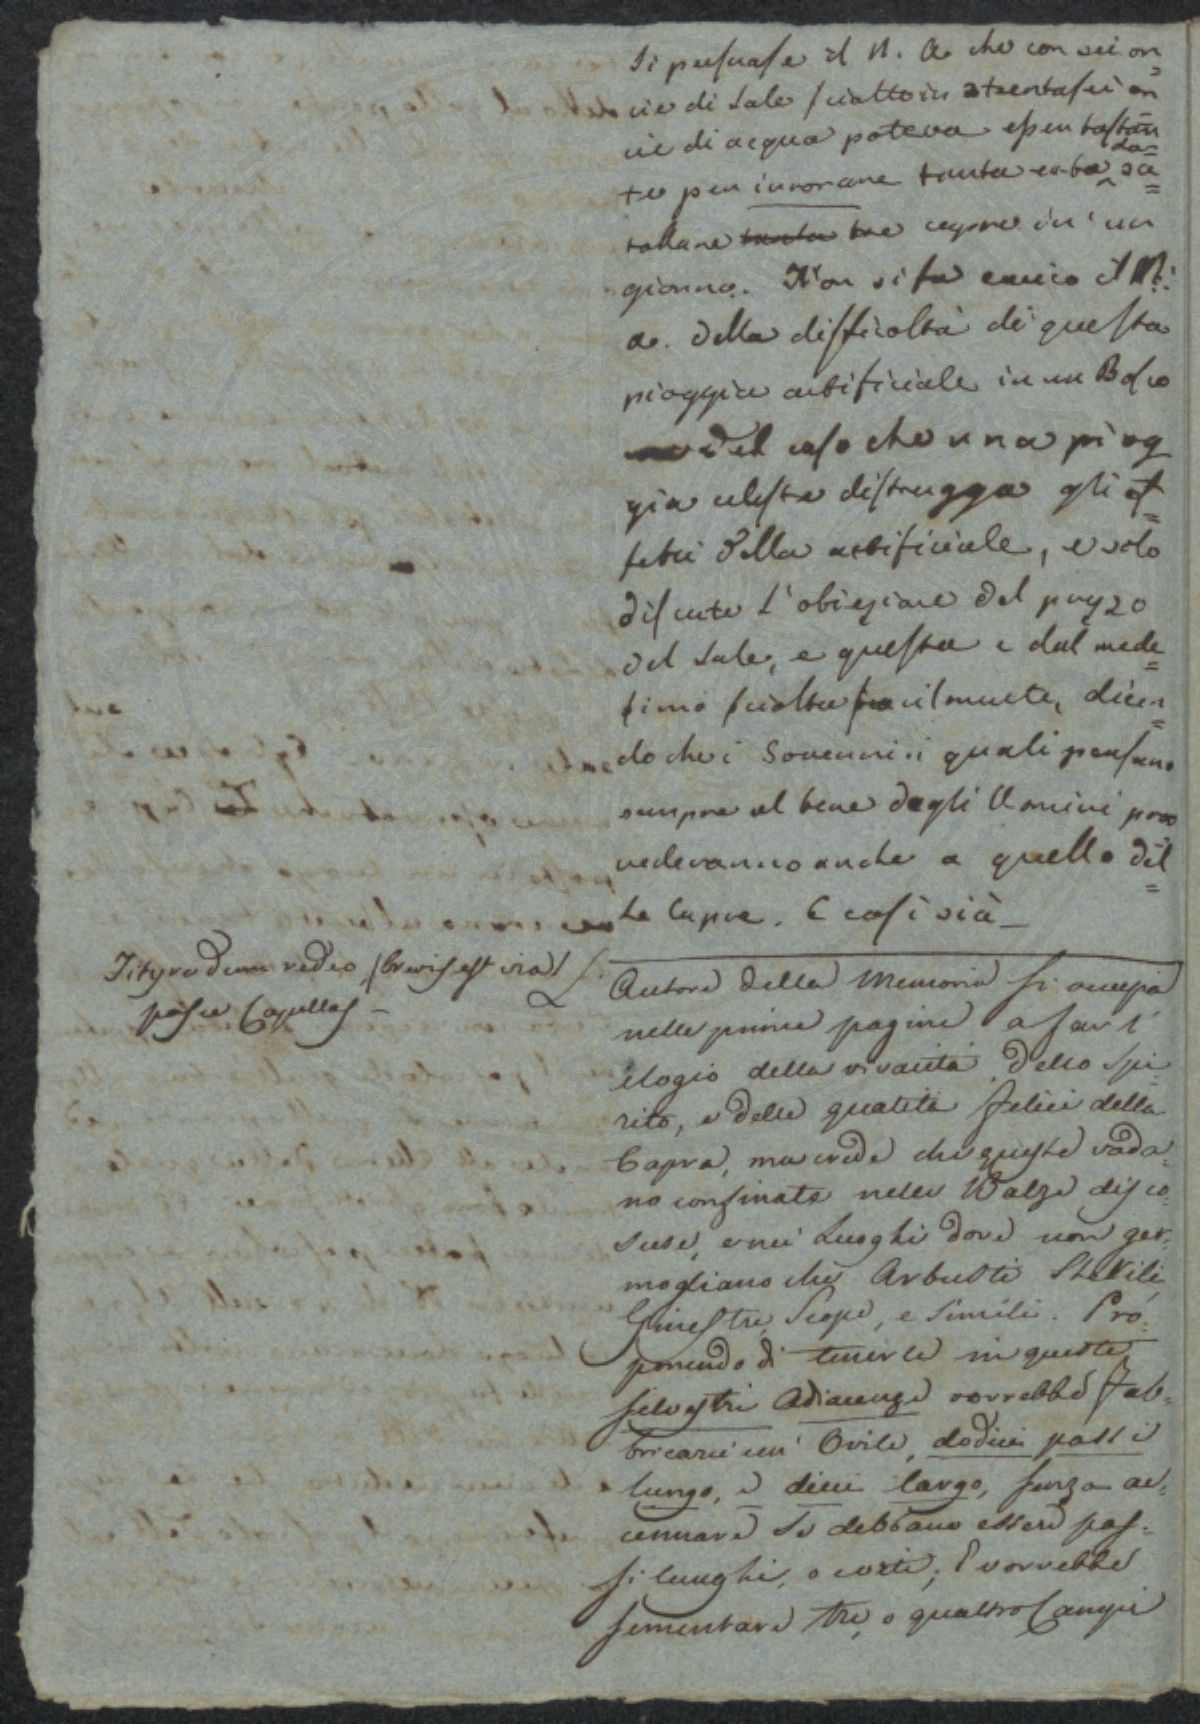 si persuase il N. A. che con sei on
cie di Sale sciolto in trentasei on
cie di acqua poteva esser bastan
te per irrorare tanta erba da sa=
tollare tanta tre capre in un
giorno. Non si fa carico il N:
A. della difficoltà di questa
pioggia artificiale in un Bosco
del caso che una piog
gia celeste distrugga gli ef=
fetti della artificiale, e solo
discute l'obiezione del prezzo
del Sale, e questa è dal mede=
simo sciolta facilmente, dicen=
do che i Sovenni i quali pensano
sempre al bene degli Uomini prov
vederanno anche a quello del=
le Capre. E così sia_
Tityre dum redeo, (brevis est via)
pasce Capellas_
L'Autore della Memoria si occupa
nelle prime pagine a far l'
elogio della vivacità dello Spi=
rito, e delle qualità felici della
Capra, ma crede che queste vada=
no confinate nelle Balze disco=
scese, e nei Luoghi dove non ger=
mogliano che Arbusti Sterili,
Ginestre, Scope, e Simili. Pro=
ponendo di tenerle in queste
silvestri Adiacenze vorrebbe Fab=
bricarci un' Ovile, dodici passi
lungo, e dieci largo, senza ac=
cennare se debbano essere pas=
si lunghi, o corti; E vorrebbe
sementare tre, o quattro Campi